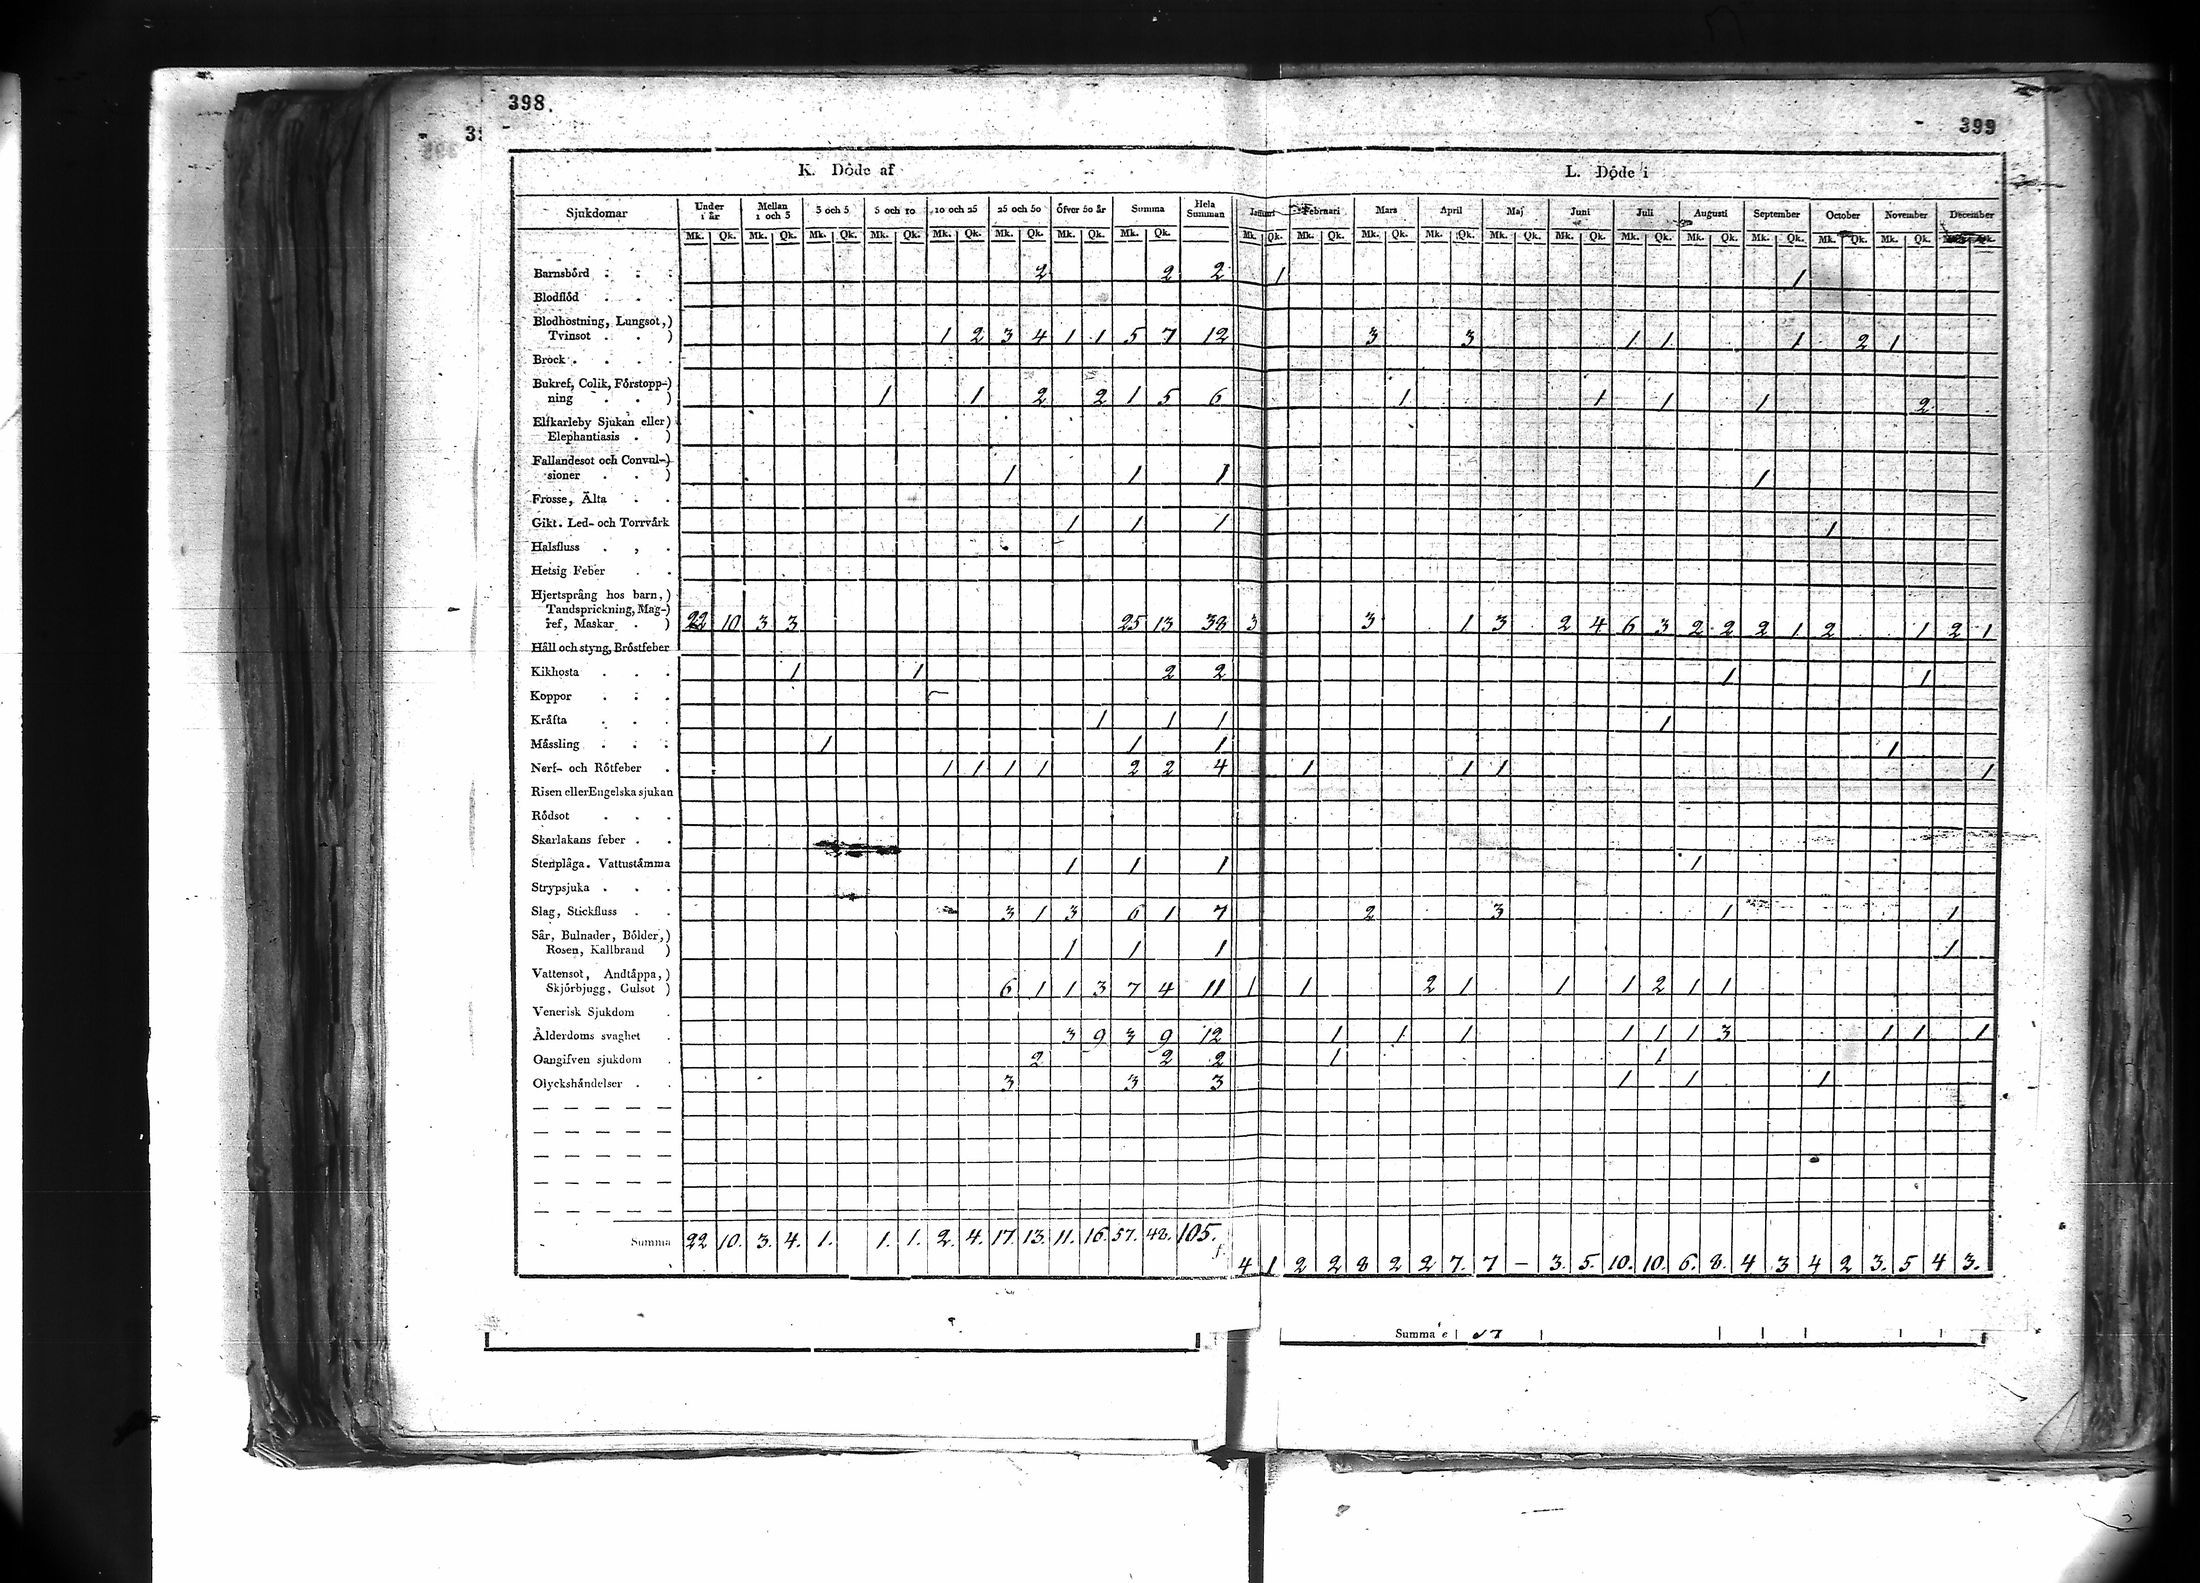 398.
399
K. Döde af
L. Döde i
Sjukdomar | Under 1 år | Mellan 1 och 3 | 3 och 5 | 5 och 10 | 10 och 25 | 25 och 50 | öfver 50 år | Summa | Hela Summan | Januari | Februari | Mars | April | Maj | Juni | Juli | Augusti | September | October | November | December
Mk. Qk. Mk. Qk. Mk. Qk. Mk. Qk. Mk. Qk. Mk. Qk. Mk. Qk. Mk. Qk. Mk. Qk. Mk. Qk. Mk. Qk. Mk. Qk. Mk. Qk. Mk. Qk. Mk. Qk. Mk. Qk. Mk. Qk. Mk. Qk. Mk. Qk. Mk. Qk.
Barnsbörd . . . 2 2 2 1 1
Blodflöd . . .
Blodhostning, Lungsot,)
Tvinsot . . ) 1 2 3 4 1 1 5 7 12 3 3 1 1 1 2 1
Bröck . . . .
Bukref, Colik, Förstopp-)
ning . . ) 1 1 2 2 1 5 6 1 1 1 1 2
Elfkarleby Sjukan eller)
Elephantiasis . )
Fallandesot och Convul-)
sioner . . ) 1 1 1 1
Frosse, Älta . .
Gikt. Led- och Torrvärk 1 1 1 1
Halsfluss . , .
Hetsig Feber . .
Hjertsprång hos barn,)
Tandsprickning, Mag-)
ref, Maskar . ) 22 10 3 3 25 13 38 3 3 1 3 2 4 6 3 2 2 2 1 2 1 2 1
Håll och styng, Bröstfeber
Kikhosta . . . 1 1 2 2 1 1
Koppor . . .
Kräfta . . . 1 1 1 1
Mässling . . . 1 1 1 1
Nerf- och Rötfeber . 1 1 1 1 2 2 4 1 1 1 1
Risen eller Engelska sjukan
Rödsot . . .
Skarlakans feber . .
Stenplåga. Vattustämma 1 1 1 1
Strypsjuka . . .
Slag, Stickfluss . . 3 1 3 6 1 7 2 3 1 1
Sår, Bulnader, Bölder,)
Rosen, Kallbrand ) 1 1 1 1
Vattensot, Andtäppa,)
Skjörbjugg, Gulsot ) 6 1 1 3 7 4 11 1 1 2 1 1 1 2 1 1
Venerisk Sjukdom .
Ålderdoms svaghet . 3 9 3 9 12 1 1 1 1 1 1 3 1 1 1
Oangifven sjukdom . 2 2 2 1 1
Olyckshändelser . . 3 3 3 1 1 1
Summa 22 10. 3. 4. 1. 1. 1. 2. 4. 17. 13. 11. 16. 57. 48. 105.
4 1 2 2 8 2 2 7. 7 — 3. 5. 10. 10. 6. 8. 4 3 4 2 3. 5 4 3.
Summa